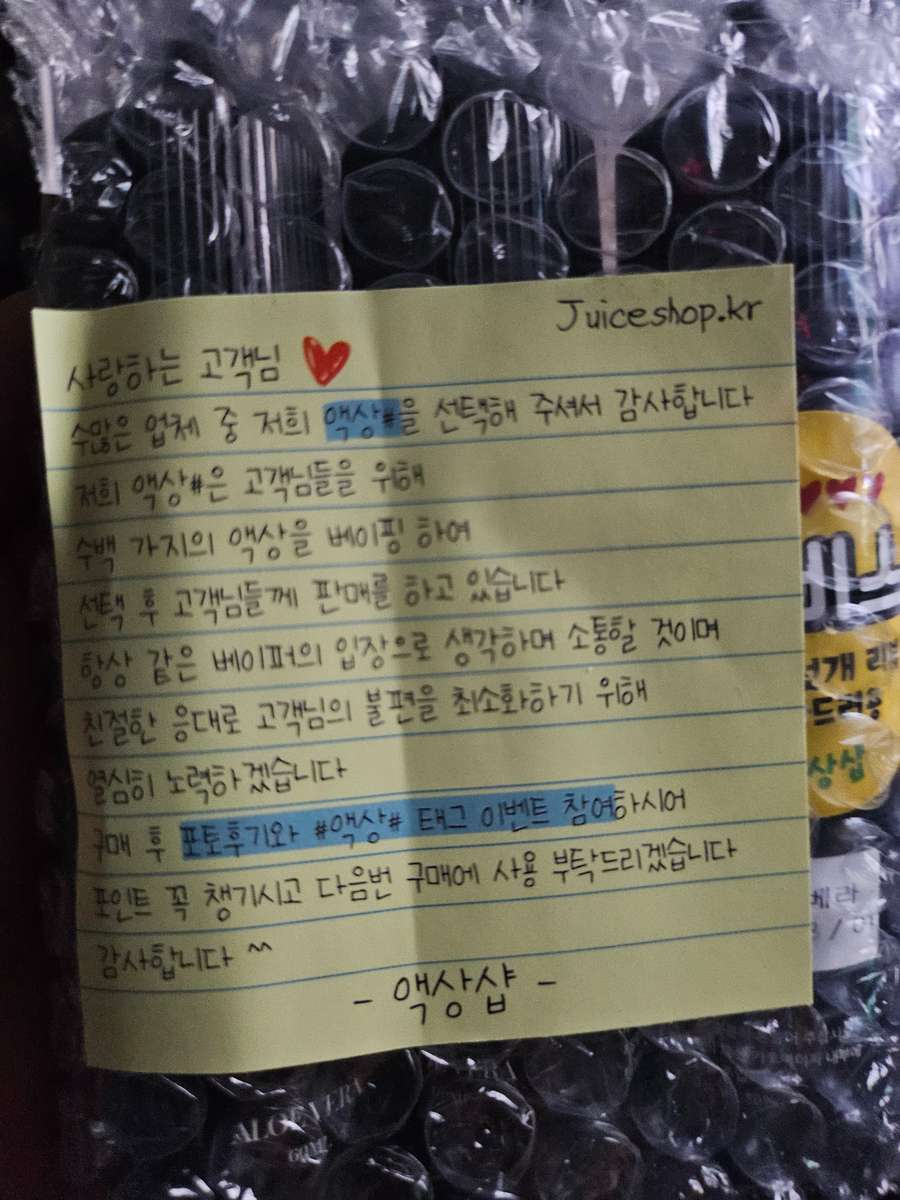 Juiceshop.kr
사랑하는 고객님
수많은 업체 중 저희 액상#을 선택해 주셔서 감사합니다
저희 액상#은 고객님들을 위해
수백 가지의 액상을 베이핑 하여
선택 후 고객님들께 판매를 하고 있습니다
항상 같은 베이퍼의 입장으로 생각하며 소통할 것이며
친절한 응대로 고객님의 불편을 최소화하기 위해
열심히 노력하겠습니다
구매 후 포토후기와 #액상# 태그 이벤트 참여하시어
포인트 꼭 챙기시고 다음번 구매에 사용 부탁드리겠습니다
감사합니다 ^^
- 액상샵 -
드려용
상십
베라
ALOE VERA
60ML